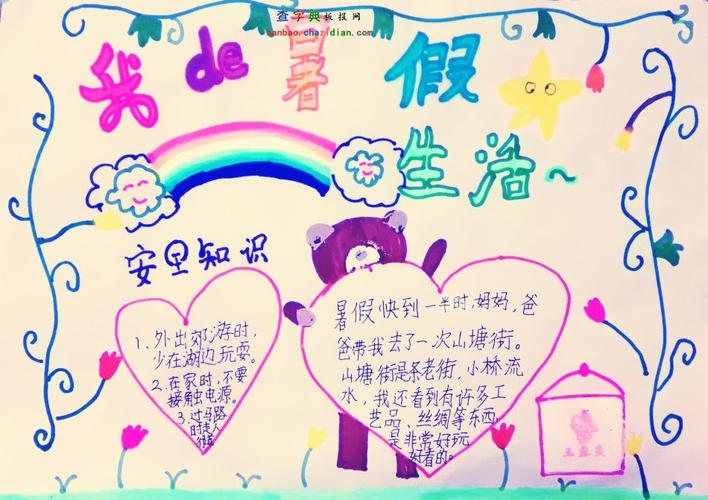 查字典板报网
banbao.chazidian.com
我de暑假
生活~
安全知识
1、外出郊游时,
少在湖边玩耍。
2、在家时,不要
接触电源。
3、过马路
时走人
暑假快到一半时,妈妈,爸
爸带我去了一次山塘街。
山塘街是条老街,小桥流
水,我还看到有许多工
艺品、丝绸等东西,
是非常好玩
好看的。